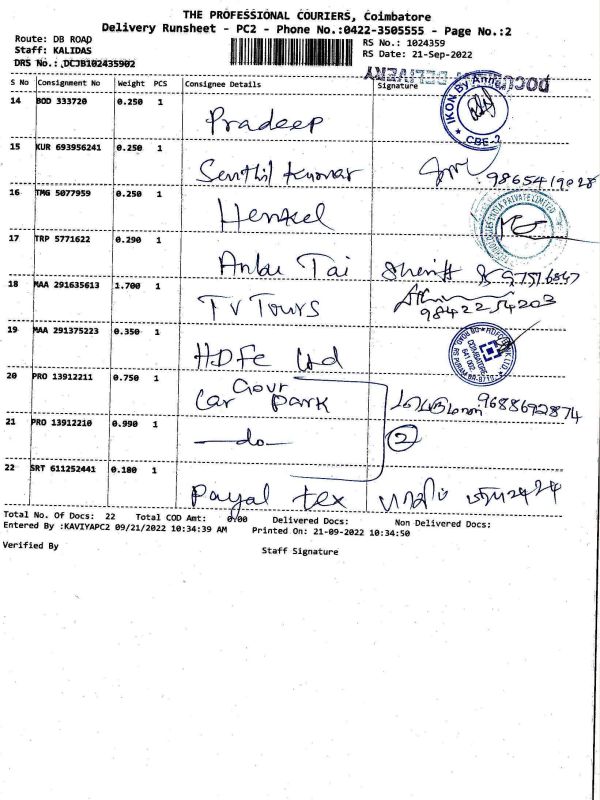 THE PROFESSIONAL COURIERS, Coimbatore
Delivery Runsheet - PC2 - Phone No.:0422-3505555 - Page No.:2
Route: DB ROAD
Staff: KALIDAS
DRS No.: DCJB102435902
RS No.: 1024359
RS Date: 21-Sep-2022
S No Consignment No Weight PCS Consignee Details Signature
14 BOD 333720 0.250 1 Pradeep
IKON By Annai
CBE-2
15 KUR 693956241 0.250 1 Senthil Kumar
16 TMG 5077959 0.250 1 Henkel
INDIA PRIVATE LIMITED
17 TRP 5771622 0.290 1 Anbu Tai Sheriff
18 MAA 291635613 1.700 1 TV Tours 9842254203
19 MAA 291375223 0.350 1 HDFC Ltd
20 PRO 13912211 0.750 1 Gour Car Park 9688692874
21 PRO 13912210 0.990 1 —do— 2
22 SRT 611252441 0.180 1 Payal tex
Total No. Of Docs: 22 Total COD Amt: 0.00 Delivered Docs: Non Delivered Docs:
Entered By :KAVIYAPC2 09/21/2022 10:34:39 AM Printed On: 21-09-2022 10:34:50
Verified By Staff Signature